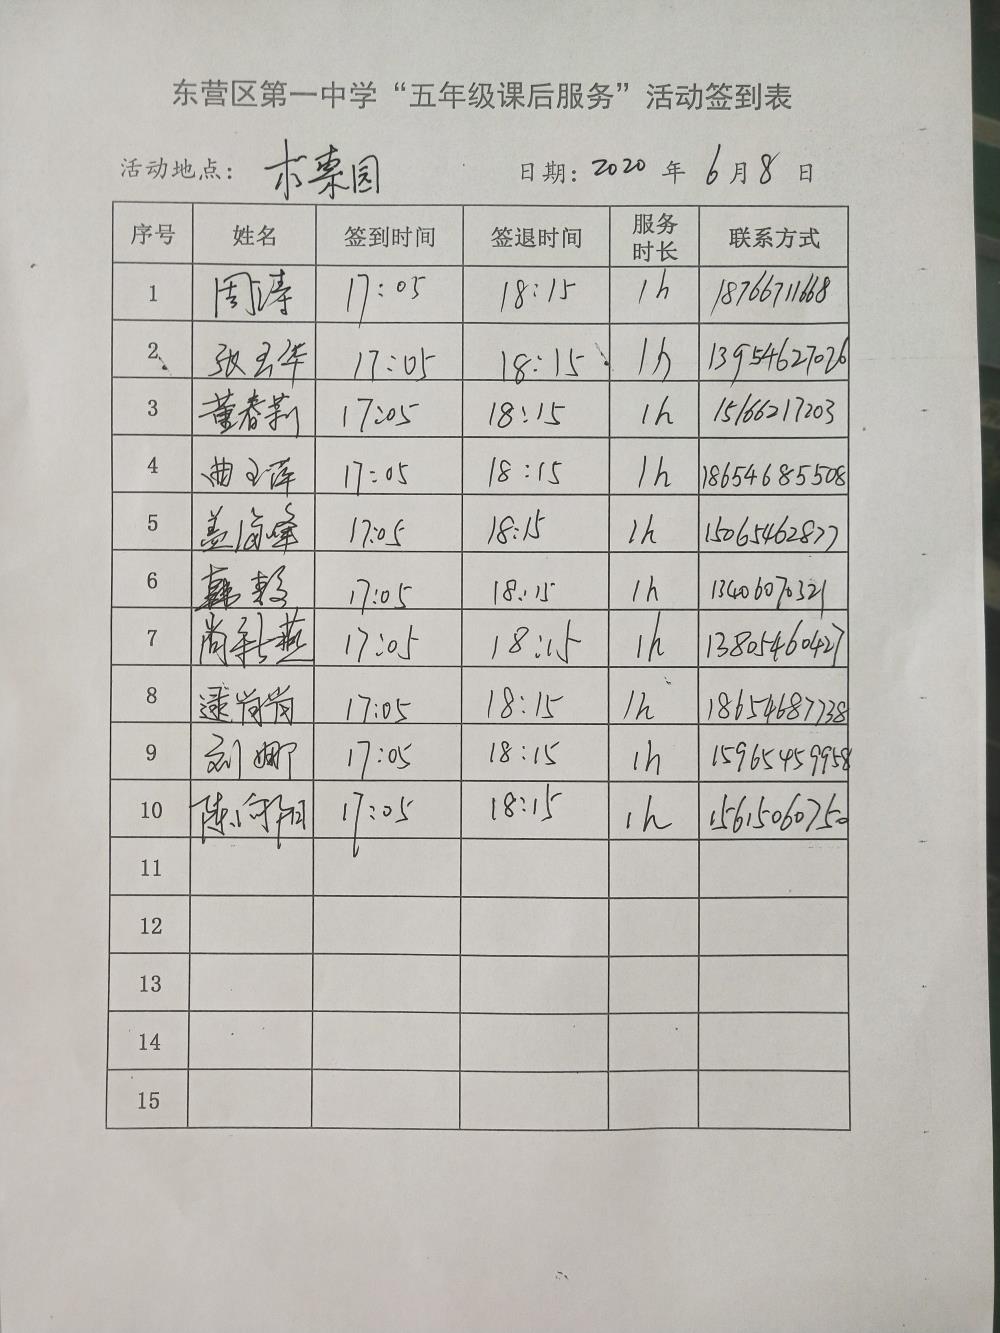 东营区第一中学“五年级课后服务”活动签到表
活动地点： 枣园 日期：2020 年 6 月 8 日
序号 姓名 签到时间 签退时间 服务时长 联系方式
1 周涛 17:05 18:15 1h 18766711668
2 张玉华 17:05 18:15 1h 13954627026
3 董春莉 17:05 18:15 1h 15166217203
4 曲玉萍 17:05 18:15 1h 18654685508
5 盖海峰 17:05 18:15 1h 15065462877
6 韩 17:05 18:15 1h 13406070321
7 尚新燕 17:05 18:15 1h 13805460427
8 逯岗岗 17:05 18:15 1h 18654687738
9 刘娜 17:05 18:15 1h 15965459958
10 陈向阳 17:05 18:15 1h 15615060750
11
12
13
14
15